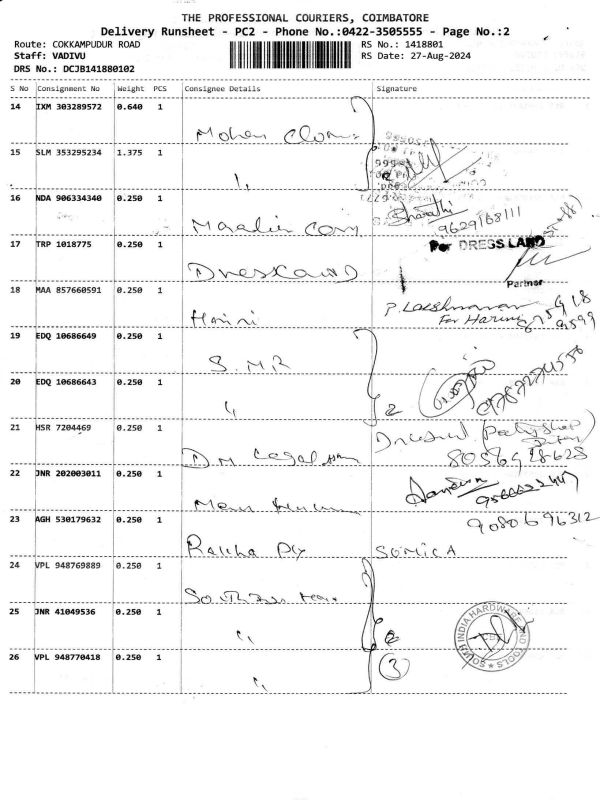 THE PROFESSIONAL COURIERS, COIMBATORE
Delivery Runsheet - PC2 - Phone No.:0422-3505555 - Page No.:2
Route: COKKAMPUDUR ROAD RS No.: 1418801
Staff: VADIVU RS Date: 27-Aug-2024
DRS No.: DCJB141880102
S No Consignment No Weight PCS Consignee Details Signature
14 IXM 303289572 0.640 1
Mohan
15 SLM 353295234 1.375 1
"
16 NDA 906334340 0.250 1
Bharathi
9629168111
17 TRP 1018775 0.250 1
For DRESS LAND
Dressland
Partner
18 MAA 857660591 0.250 1
P. Lakshmanan
For Harini
Harini
19 EDQ 10686649 0.250 1
S.M.R
20 EDQ 10686643 0.250 1
" 2
21 HSR 7204469 0.250 1
D.M
8056928628
22 JNR 202003011 0.250 1
23 AGH 530179632 0.250 1
9080696312
Rakha Ply SOMICA
24 VPL 948769889 0.250 1
25 JNR 41049536 0.250 1
"
SOUTH INDIA HARDWARE AND TOOLS
26 VPL 948770418 0.250 1
" 3